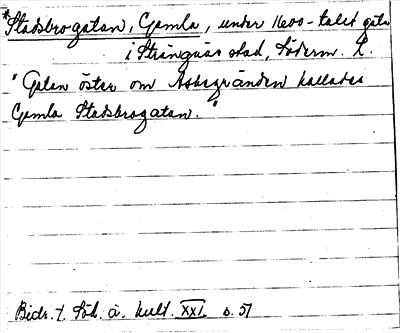 *Stadsbrogatan, Gamla, under 1600-talet gata
i Strängnäs stad, Söderm. L.
"Gatan öster om Askegränden kallades
Gamla Stadsbrogatan."
Bidr. t. Söd. ä. kult. XXI s. 51